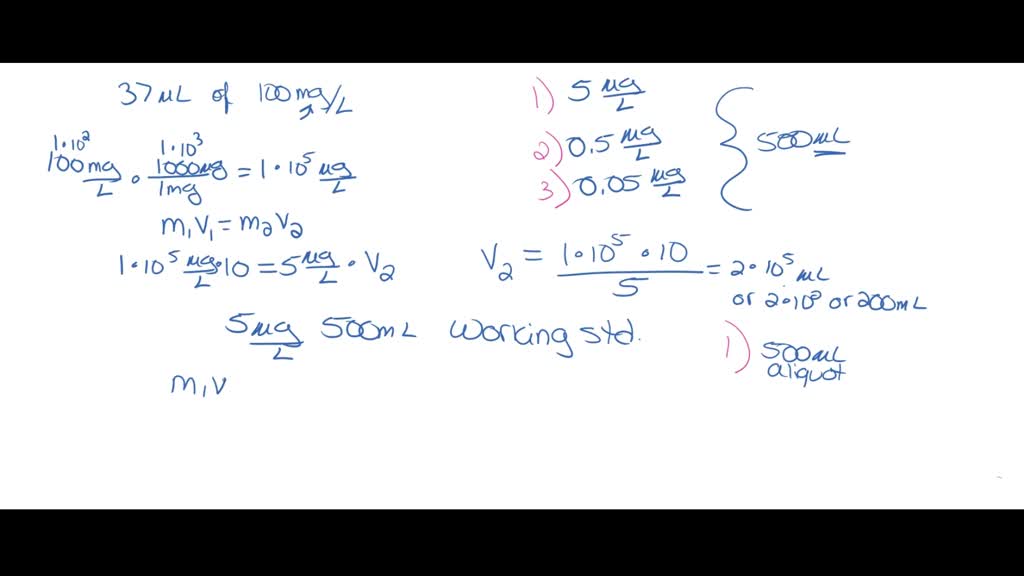 37 µL of 100 mg/L
1·10² 1·10³
100mg/L · 1000µg/1mg = 1·10⁵ µg/L
m₁V₁ = m₂V₂
1·10⁵ µg/L · 10 = 5 µg/L · V₂
1) 5 µg/L
2) 0.5 µg/L
3) 0.05 µg/L
500 µL
V₂ = 1·10⁵ · 10 / 5 = 2·10⁵ µL
or 2·10² or 200mL
5 µg/L 500mL working std.
1) 500µL
aliquot
m₁V